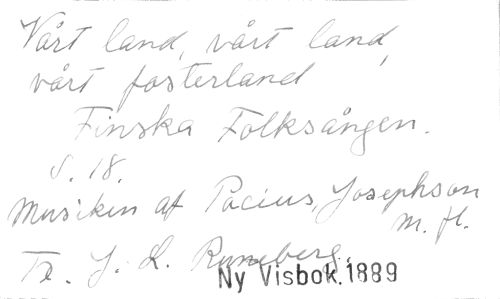 Vårt land, vårt land,
vårt fosterland
Finska Folksången.
S. 18.
Musiken af Pacius, Josephson
m. fl.
Tx. J. L. Runeberg.
Ny Visbok. 1889